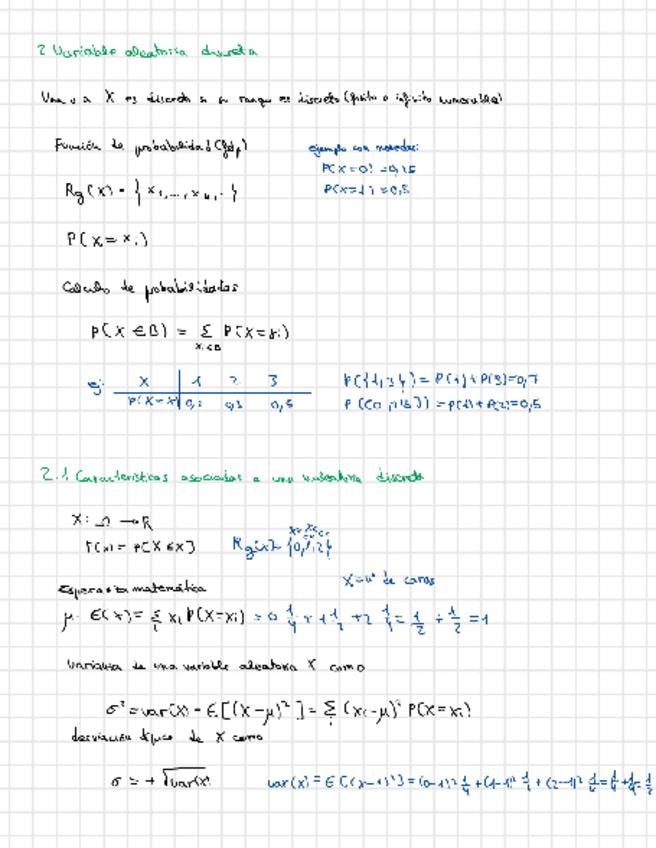 2 Variable aleatoria discreta
Una v a X es discreta si su rango es discreto (finito o infinito numerable)
Función de probabilidad (fdp)
ejemplo con monedas:
P(X=0) = 0,25
Rg(X) = { x1,..., xn, . }
P(X=1) = 0,5
P(X = xi)
Calculo de probabilidades
P(X ∈ B) = Σ P(X=xi)
xi ∈ B
ej: X 1 2 3
P(X=x) 0,2 0,3 0,5
P({1,3}) = P(1)+P(3)=0,7
= P(1)+P(2)=0,5
2.1 Características asociadas a una aleatoria discreta
X: Ω → R
F(x) = P(X ≤ x)
Rg(x)= {0,1,2}
X = nº de caras
Esperanza matemática
μ = E(X) = Σ xi P(X=xi) = 0 1/4 + 1 1/2 + 2 1/4 = 1/2 + 1/2 = 1
Varianza de una variable aleatoria X como
σ² = var(X) = E[(X-μ)²] = Σ (xi-μ)² P(X=xi)
desviación típica de X como
σ = + √var(X)
var(X) = E[(X-1)²] = (0-1)² 1/4 + (1-1)² 1/2 + (2-1)² 1/4 = 1/4 + 1/4 = 1/2